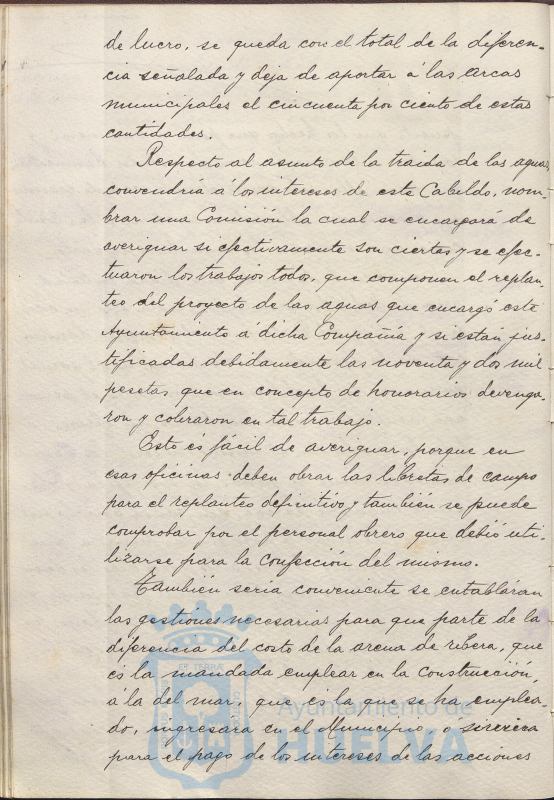 de lucro, se queda con el total de la diferen-
cia señalada y deja de aportar á las arcas
municipales el cincuenta por ciento de estas
cantidades.
Respecto al asunto de la traida de las aguas,
convendría á los intereses de este Cabildo, nom-
brar una Comisión la cual se encargará de
averiguar si efectivamente son ciertas y se efec-
tuaron los trabajos todos, que componen el replan-
teo del proyecto de las aguas que encargó este
Ayuntamiento á dicha Compañía y si están jus-
tificadas debidamente las noventa y dos mil
pesetas que en concepto de honorarios devenga-
ron y cobraron en tal trabajo.
Esto és fácil de averiguar, porque en
esas oficinas deben obrar las libretas de campo
para el replanteo definitivo y también se puede
comprobar por el personal obrero que debió uti-
lizarse para la confección del mismo.
También sería conveniente se entablaran
las gestiones necesarias para que parte de la
diferencia del costo de la arena de ribera, que
és la mandada emplear en la construcción,
á la del mar, que és la que se ha emplea-
do, ingresara en el Municipio, ó sirviera
para el pago de los intereses de las acciones
Ayuntamiento de
HUELVA